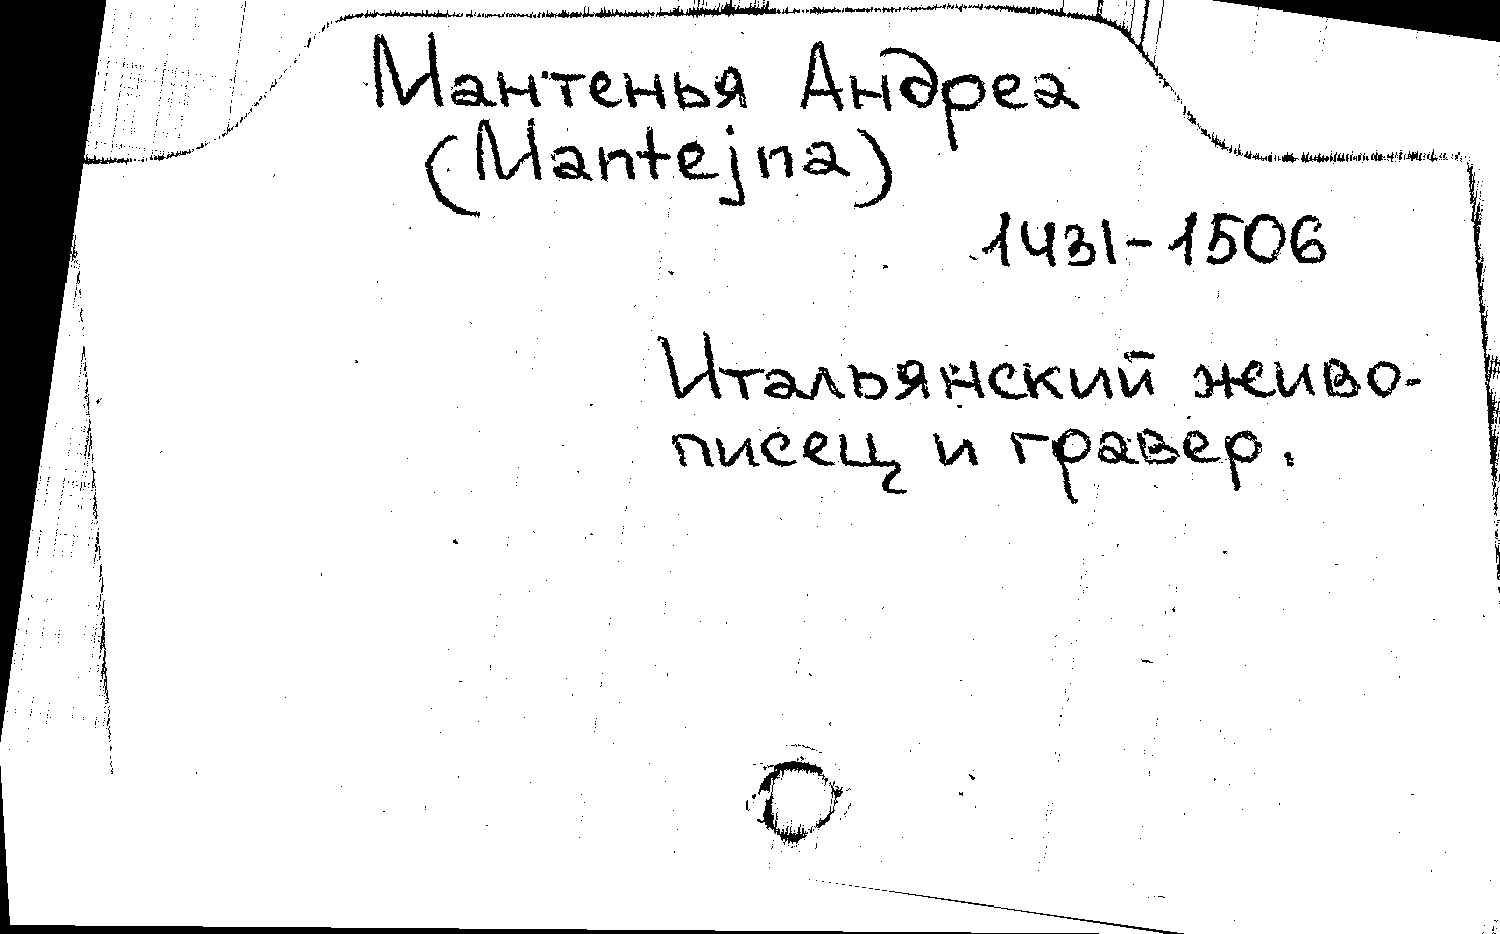 Мантенья Андреа
(Mantejna)
1431-1506
Итальянский живо-
писец и гравер.